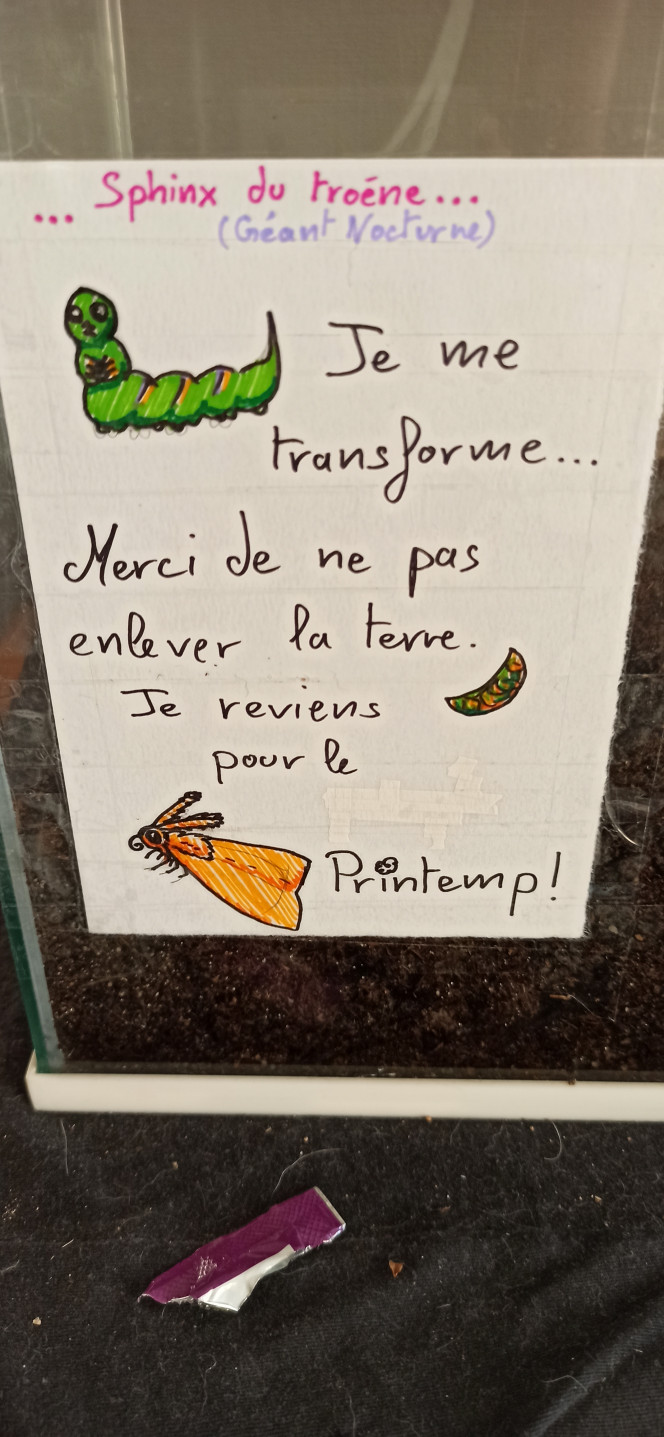 ... Sphinx du troéne...
(Géant Nocturne)
Je me
transforme...
Merci de ne pas
enlever la terre.
Je reviens
pour le
Printemp!